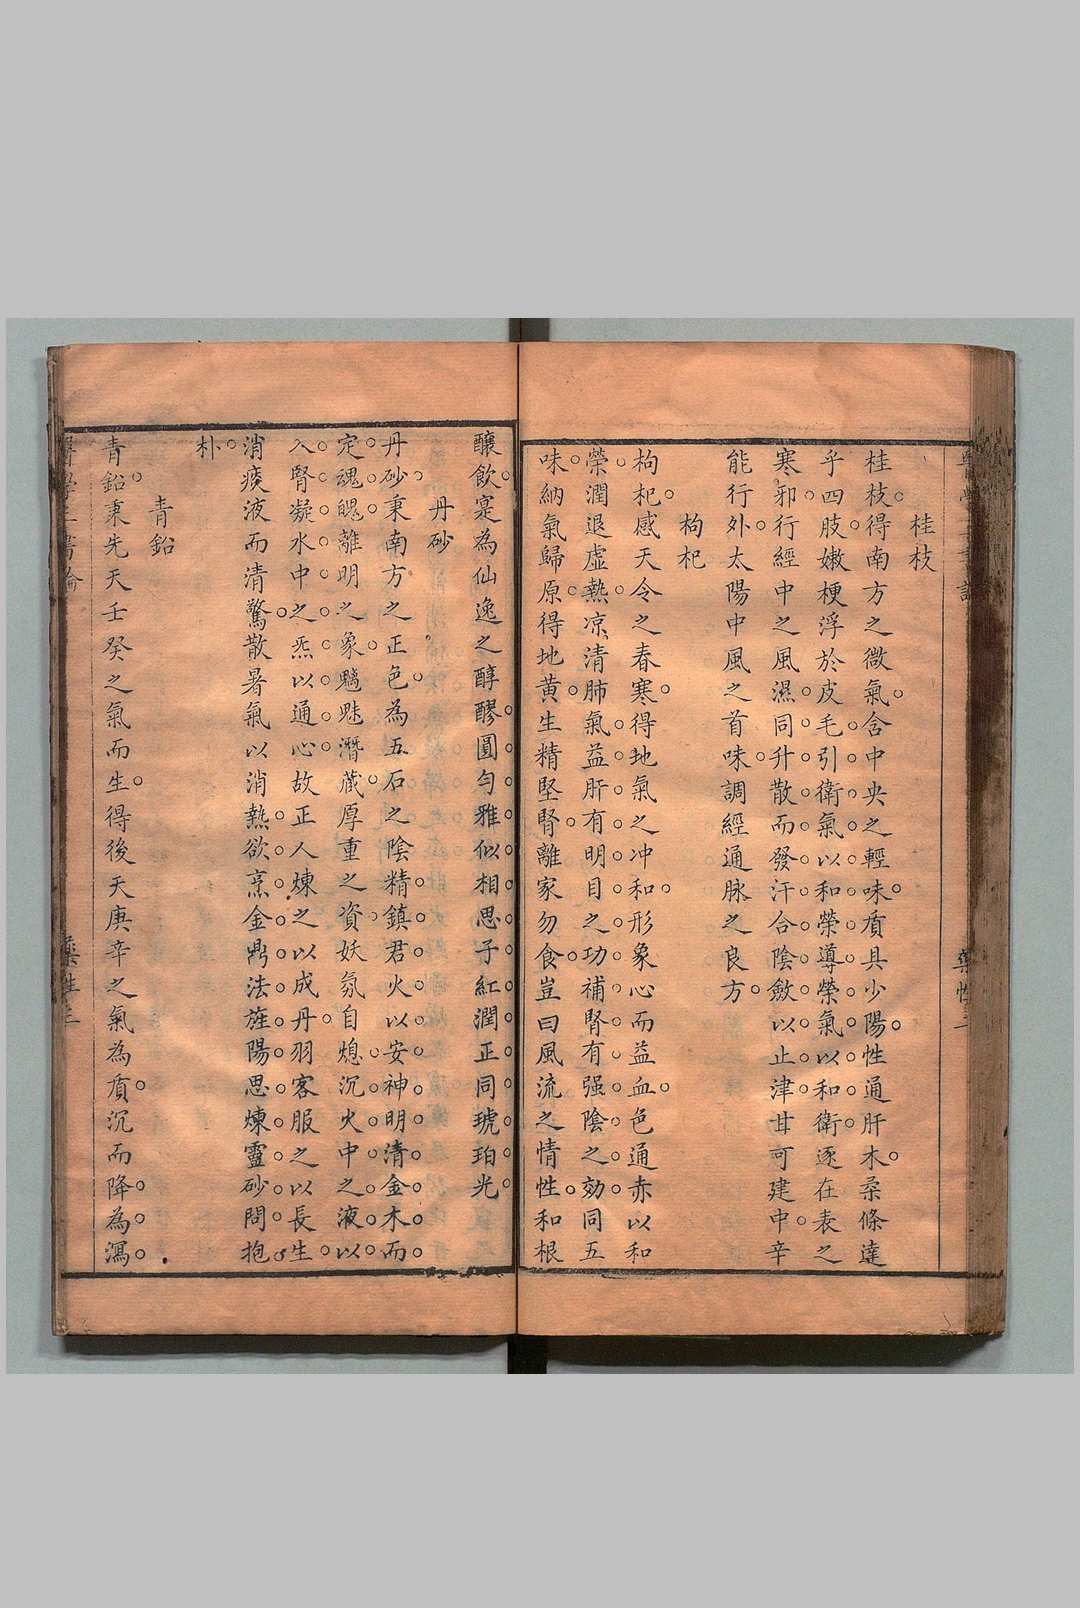 桂枝
桂枝得南方之微氣含中央之輕味質具少陽性通肝木柔條達
乎四肢嫩梗浮於皮毛引衛氣以和榮導榮氣以和衛逐在表之
寒邪行經中之風濕同升散而發汗合陰斂以止津甘可建中辛
能行外太陽中風之首味調經通脉之良方
枸杞
枸杞感天令之春寒得地氣之冲和形象心而益血色通赤以和
榮潤退虛熱凉清肺氣益肝有明目之功補腎有强陰之効同五
味納氣歸原得地黃生精堅腎離家勿食豈曰風流之情性和根
釀飲寔為仙逸之醇醪圓勻雅似相思子紅潤正同琥珀光
丹砂
丹砂秉南方之正色為五石之陰精鎮君火以安神明清金木而
定魂魄離明之象魑魅潛藏厚重之資妖氛自熄沉火中之液以
入腎凝水中之炁以通心故正人煉之以成丹羽客服之以長生
消痰液而清驚散暑氣以消熱欲烹金鼎法旌陽思煉靈砂問抱
朴
青鉛
青鉛秉先天壬癸之氣而生得後天庚辛之氣為質沉而降為瀉
藥性三